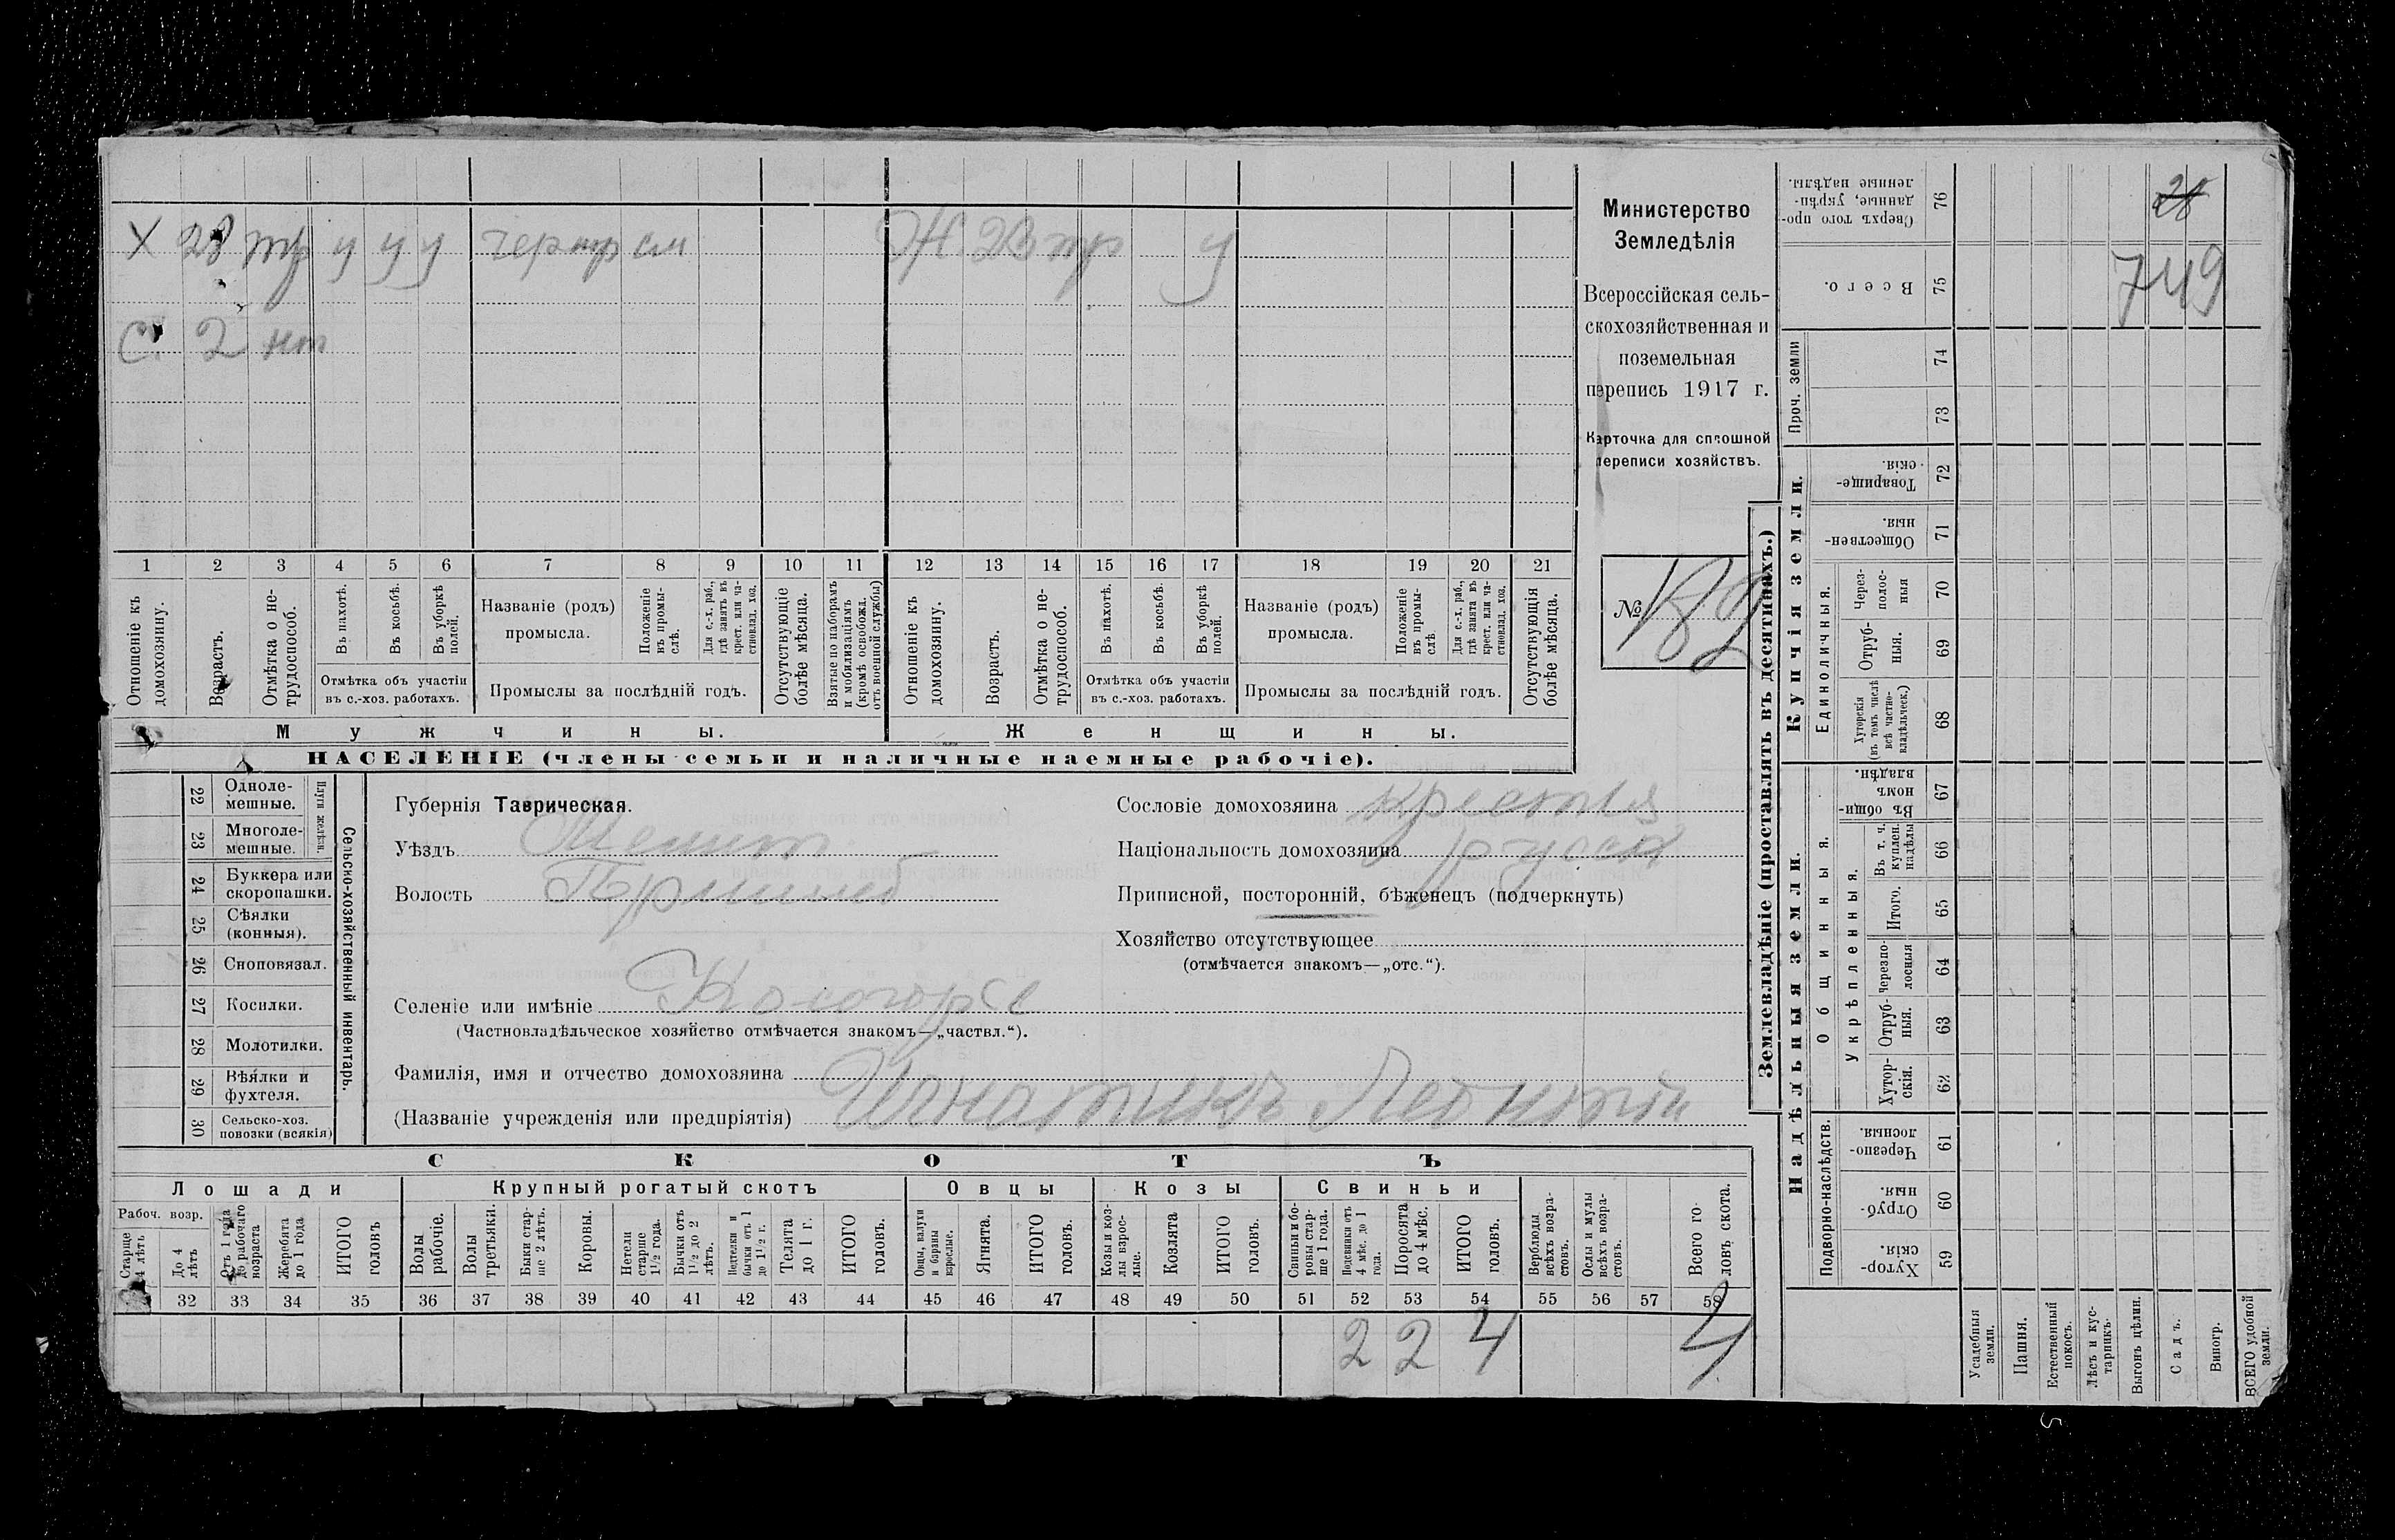 Х 28 тр у у у чернр см Ж. 23 тр у
С. 2 нт
1 2 3 4 5 6 7 8 9 10 11 12 13 14 15 16 17 18 19 20 21
Отношеніе къ домохозяину.
Возрастъ.
Отмѣтка о не-
трудоспособ.
Въ пахотѣ.
Въ косьбѣ.
Въ уборкѣ
полей.
Отмѣтка объ участіи
въ с.-хоз. работахъ.
Названіе (родъ)
промысла.
Положеніе
въ промы-
слѣ.
Для с.-х. раб.,
гдѣ занятъ въ
крест. или ча-
стновлад. хоз.
Промыслы за послѣдній годъ.
Отсутствующіе
болѣе мѣсяца.
Взятые по наборамъ
и мобилизаціямъ
(кромѣ освобожд.
отъ военной службы)
Отношеніе къ
домохозяину.
Возрастъ.
Отмѣтка о не-
трудоспособ.
Въ пахотѣ.
Въ косьбѣ.
Въ уборкѣ
полей.
Отмѣтка объ участіи
въ с.-хоз. работахъ.
Названіе (родъ)
промысла.
Положеніе
въ промы-
слѣ.
Для с.-х. раб.,
гдѣ занята въ
крест. или ча-
стновлад. хоз.
Промыслы за послѣдній годъ.
Отсутствующія
болѣе мѣсяца.
Мужчины.
Женщины.
НАСЕЛЕНІЕ (члены семьи и наличные наемные рабочіе).
Министерство
Земледѣлія
Всероссійская сель-
скохозяйственная и
поземельная
перепись 1917 г.
Карточка для сплошной
переписи хозяйствъ.
№ 182
22 Одноле-
мешные.
23 Многоле-
мешные.
Плуги желѣзн.
24 Буккера или
скоропашки.
25 Сѣялки
(конныя).
26 Сноповязал.
27 Косилки.
28 Молотилки.
29 Вѣялки и
фухтеля.
30 Сельско-хоз.
повозки (всякія)
Сельско-хозяйственный инвентарь.
Губернія Таврическая.
Уѣздъ Мелит
Волость
Селеніе или имѣніе
(Частновладѣльческое хозяйство отмѣчается знакомъ—„частвл.“).
Фамилія, имя и отчество домохозяина
(Названіе учрежденія или предпріятія) Игнатикъ Леонтій
Сословіе домохозяина крестья
Національность домохозяина русск
Приписной, посторонній, бѣженецъ (подчеркнуть)
Хозяйство отсутствующее
(отмѣчается знакомъ—„отс.“).
СКОТЪ
Лошади
Крупный рогатый скотъ
Овцы
Козы
Свиньи
Рабоч. возр.
Старше
4 лѣтъ
До 4
лѣтъ
Отъ 1 года
до рабочаго
возраста
Жеребята
до 1 года
ИТОГО
головъ
Волы
рабочіе.
Волы
третьяки.
Быки стар-
ше 2 лѣтъ.
Коровы.
Нетели
старше
1½ года.
Бычки отъ
1½ до 2
лѣтъ.
Нетелки и
бычки отъ 1
до 1½ г.
Телята
до 1 г.
ИТОГО
головъ.
Овцы, валухи
и бараны
взрослые.
Ягнята.
ИТОГО
головъ.
Козы и коз-
лы взрос-
лые.
Козлята
ИТОГО
головъ.
Свиньи и бо-
ровы стар-
ше 1 года.
Подсвинки отъ
4 мѣс. до 1
года.
Поросята
до 4 мѣс.
ИТОГО
головъ.
Верблюды
всѣхъ возра-
стовъ.
Ослы и мулы
всѣхъ возра-
стовъ.
Всего го-
ловъ скота.
32 33 34 35 36 37 38 39 40 41 42 43 44 45 46 47 48 49 50 51 52 53 54 55 56 57 58
2 2 4 4
Землевладѣніе (проставлять въ десятинахъ.)
Надѣльныя земли.
Купчія земли.
Проч. земли
Подворно-наслѣдств.
Общинныя.
Укрѣпленныя.
Единоличныя.
76 Сверхъ того про-
данные, укрѣп-
ленные надѣлы.
75 Всего.
74
73
72 Товарище-
скія.
71 Обществен-
ныя.
70 Через-
полос-
ныя
69 Отруб-
ныя.
68 Хуторскія
(въ томъ числѣ
всѣ частно-
владѣльческ.)
67 Въ общин-
номъ
владѣн.
66 Въ т. ч.
куплен.
надѣлы
65 Итого.
64 Черезпо-
лосныя
63 Отруб-
ныя.
62 Хутор-
скія.
61 Черезпо-
лосныя.
60 Отруб-
ныя.
59 Хутор-
скія.
Усадебныя
земли.
Пашня.
Естественный
покосъ.
Лѣсъ и кус-
тарникъ.
Выгонъ цѣлин.
Садъ.
Виногр.
ВСЕГО удобной
земли.
28
749